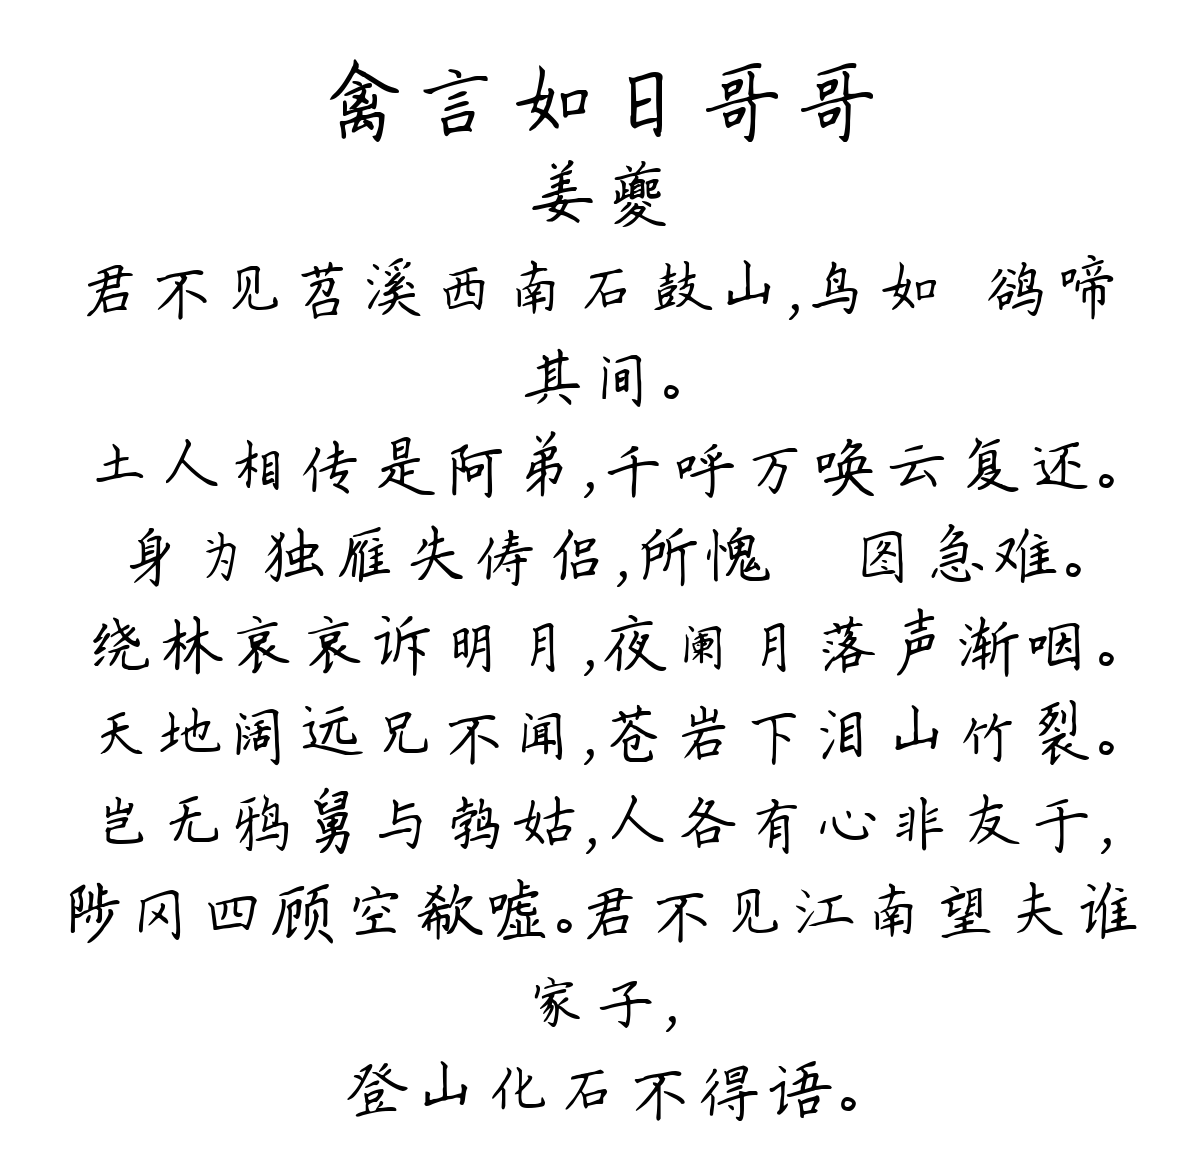 禽言如日哥哥
姜夔
君不见苕溪西南石鼓山,鸟如 鹆啼
其间。
土人相传是阿弟,千呼万唤云复还。
身为独雁失俦侣,所愧 图急难。
绕林哀哀诉明月,夜阑月落声渐咽。
天地阔远兄不闻,苍岩下泪山竹裂。
岂无鸦舅与鹁姑,人各有心非友于,
陟冈四顾空欷嘘。君不见江南望夫谁
家子,
登山化石不得语。